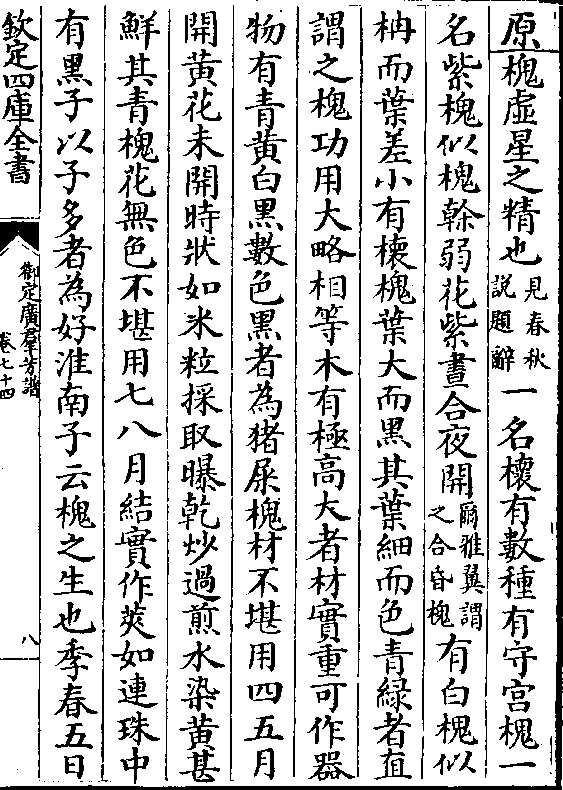 原槐虛星之精也見春秋說題辭一名櫰有數種有守宫槐一
名紫槐似槐榦弱花紫晝合夜開爾雅翼謂之合昏槐有白槐似
柟而葉差小有櫰槐葉大而黑其葉細而色青緑者直
謂之槐功用大略相等木有極高大者材實重可作器
物有青黄白黑數色黑者為猪屎槐材不堪用四五月
開黄花未開時狀如米粒採取曝乾炒過煎水染黄甚
鮮其青槐花無色不堪用七八月結實作莢如連珠中
有黑子以子多者為好淮南子云槐之生也季春五日
欽定四庫全書
御定廣羣芳譜
卷七十四
八